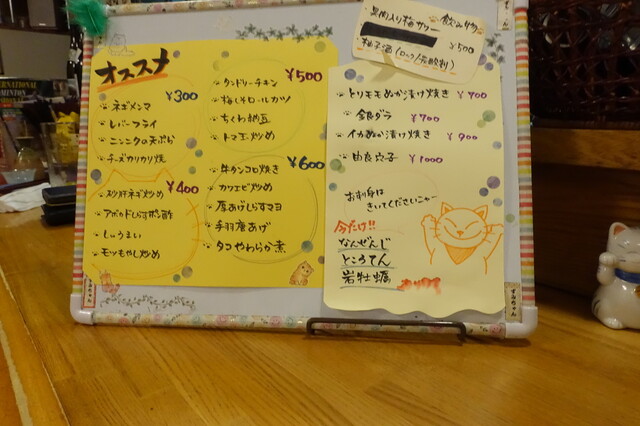 オススメ
¥300
ネギメンマ
レバーフライ
ニンニクの天ぷら
チーズカリカリ焼
¥400
砂肝ネギ炒め
アボカドしらすポン酢
しゅうまい
モツもやし炒め
¥500
タンドリーチキン
梅しそロールカツ
ちくわ納豆
トマ玉炒め
¥600
牛タンコロ焼き
カツエビ炒め
厚あげしらすマヨ
手羽唐あげ
タコやわらか煮
飲み物
果肉入り梅サワー
¥500
柚子酒(ロック/炭酸割)
トリモモぬか漬け焼き ¥700
銀ダラ ¥700
イカぬか漬け焼き ¥900
由良穴子 ¥1000
お刺身は
きいてくださいニャー
今だけ!!
なんぜんじ
ところてん
岩牡蠣
すみちゃん